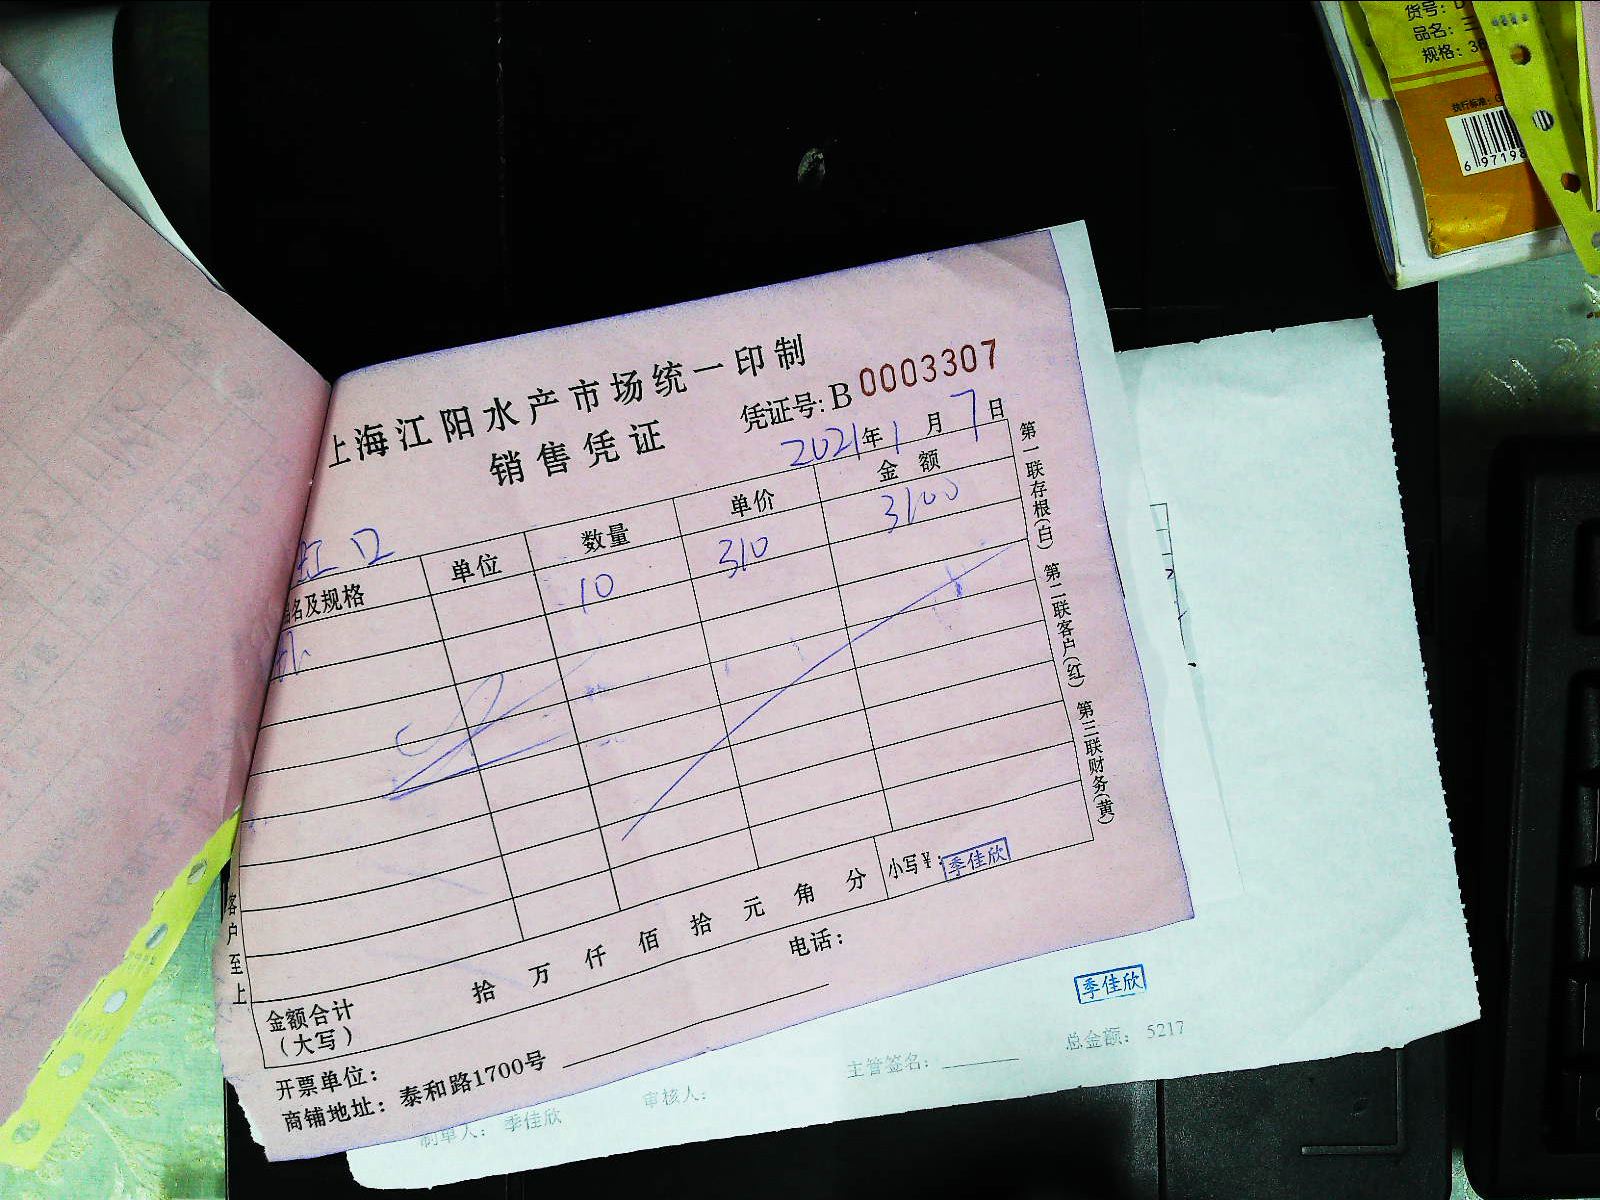 货号: D
品名: 三
规格: 36
执行标准: G
6 97198
上海江阳水产市场统一印制
销售凭证
凭证号: B 0003307
2021年1月7日
虹口
品名及规格 单位 数量 单价 金额
10 310 3100
第一联存根(白) 第二联客户(红) 第三联财务(黄)
客户至上
金额合计(大写) 拾 万 仟 佰 拾 元 角 分 小写¥: 季佳欣
开票单位: 电话:
商铺地址: 泰和路1700号
季佳欣
制单人: 季佳欣 审核人: 主管签名: 总金额: 5217